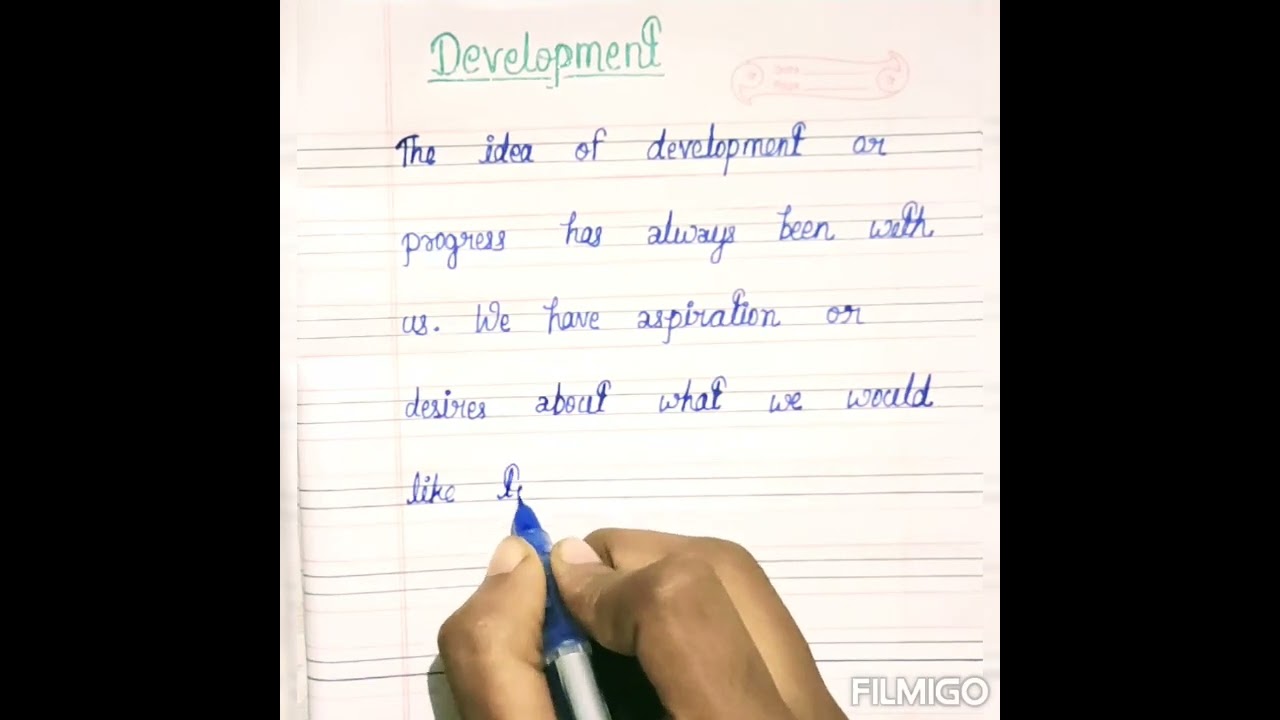 Development
The idea of development or
progress has always been with
us. We have aspiration or
desires about what we would
like
FILMIGO